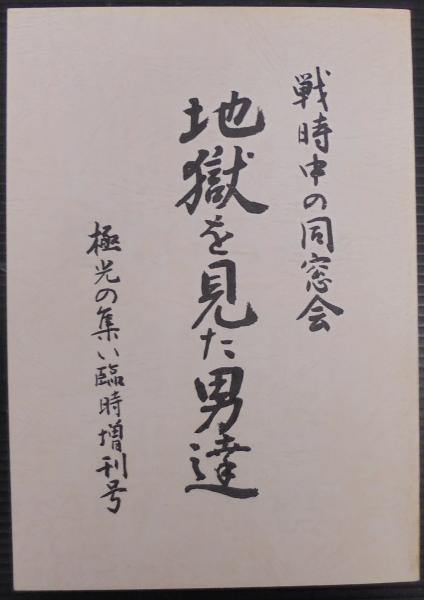 戦時中の同窓会
地獄を見た男達
極光の集い臨時増刊号